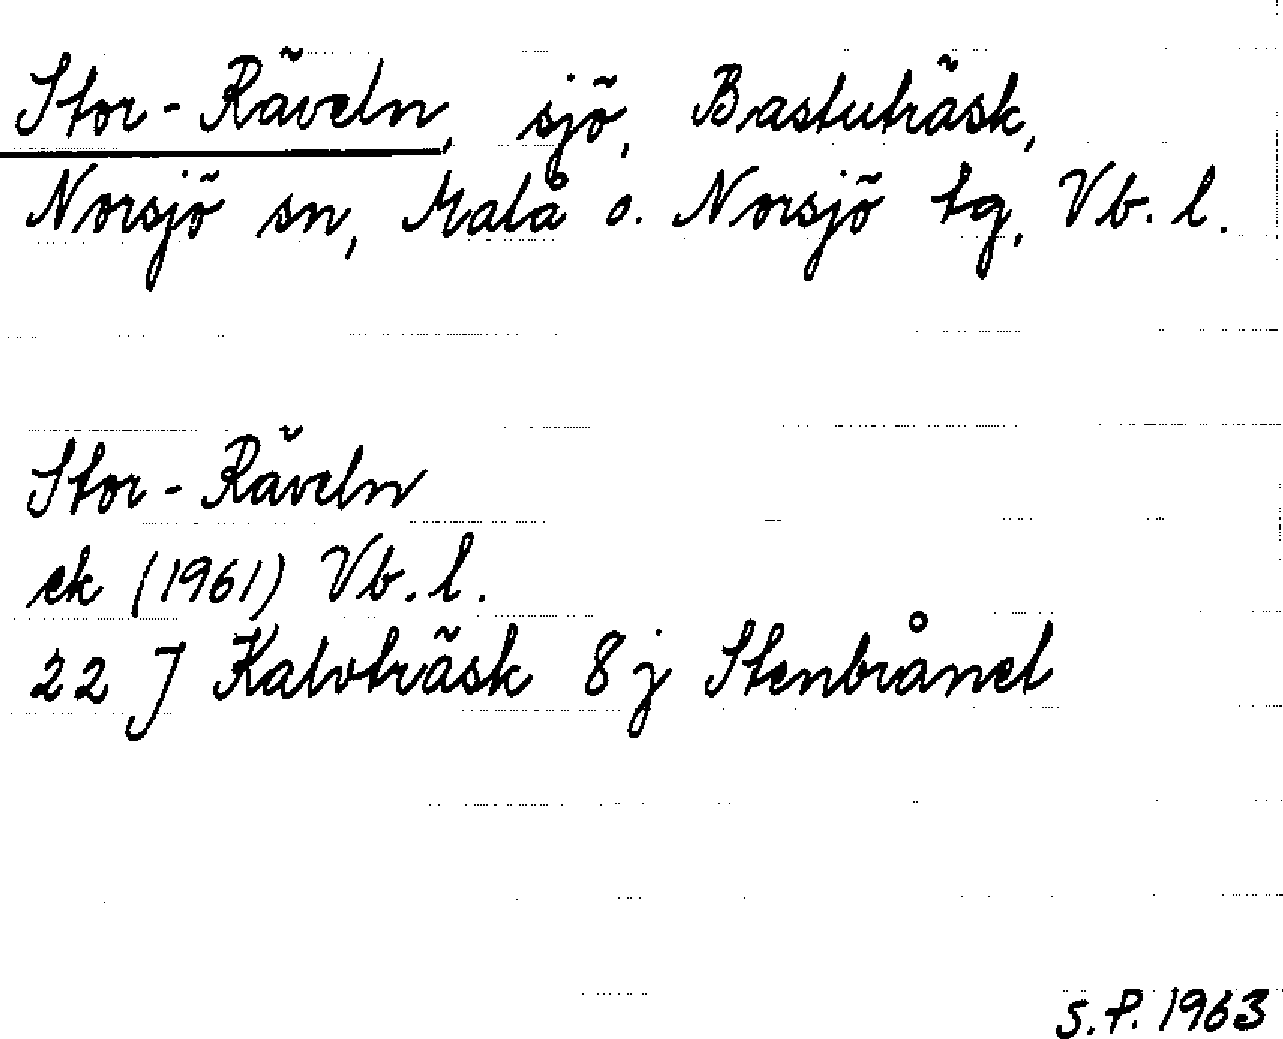 Stor-Räveln, sjö, Bastuträsk,
Norsjö sn, Malå o. Norsjö tg, Vb. l.
Stor-Räveln
ek (1961) Vb. l.
22 J Kalvträsk 8 j Stenbrånet
S.P. 1963